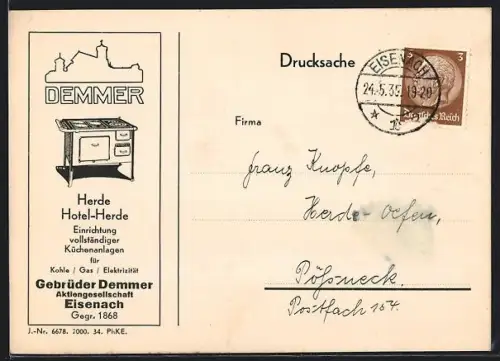 DEMMER
Herde
Hotel-Herde
Einrichtung
vollständiger
Küchenanlagen
für
Kohle / Gas / Elektrizität
Gebrüder Demmer
Aktiengesellschaft
Eisenach
Gegr. 1868
J.-Nr. 6678. 7000. 34. PhKE.
Drucksache
EISENACH
24.5.35.19-20
3
Deutsches Reich
Firma
Franz Knopfe,
Herde-Oefen,
Pößneck.
Postfach 164.